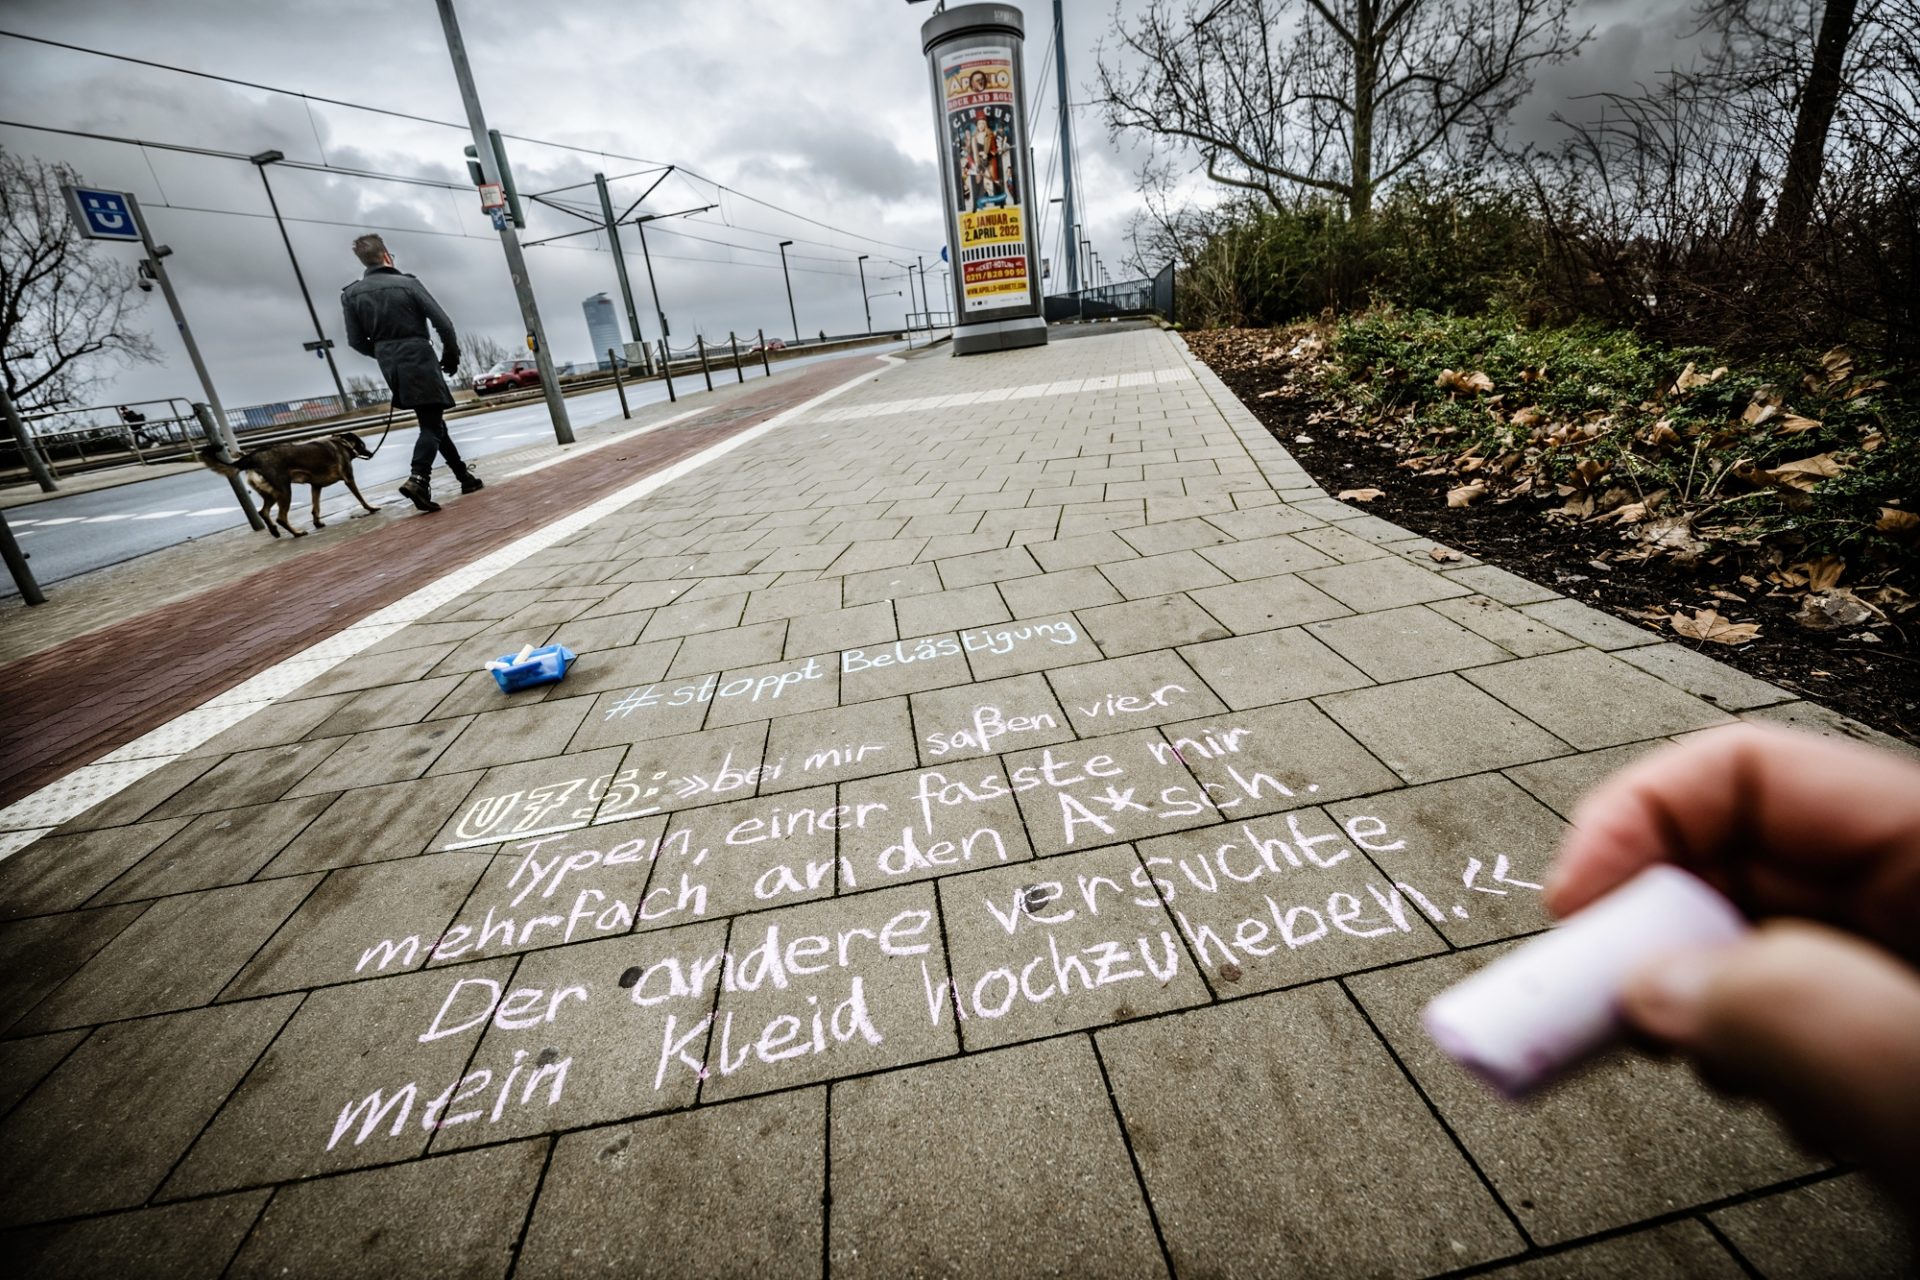 U
APOLLO
ROCK AND ROLL
CIRCUS
12. JANUAR BIS
2. APRIL 2023
TICKET-HOTLINE
0211/828 90 90
WWW.APOLLO-VARIETE.COM
#stoppt Belästigung
U75: »bei mir saßen vier
Typen, einer fasste mir
mehrfach an den A*sch.
Der andere versuchte
mein Kleid hochzuheben.«